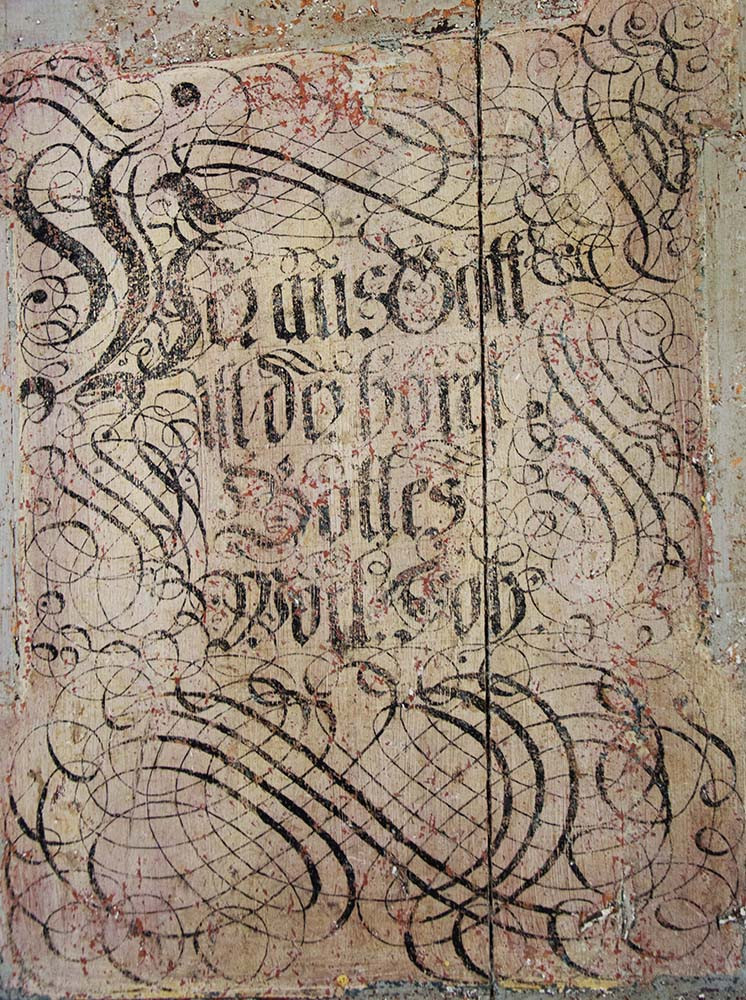 Wer aus Gott
ist der höret
Gottes
Wort. Joh: